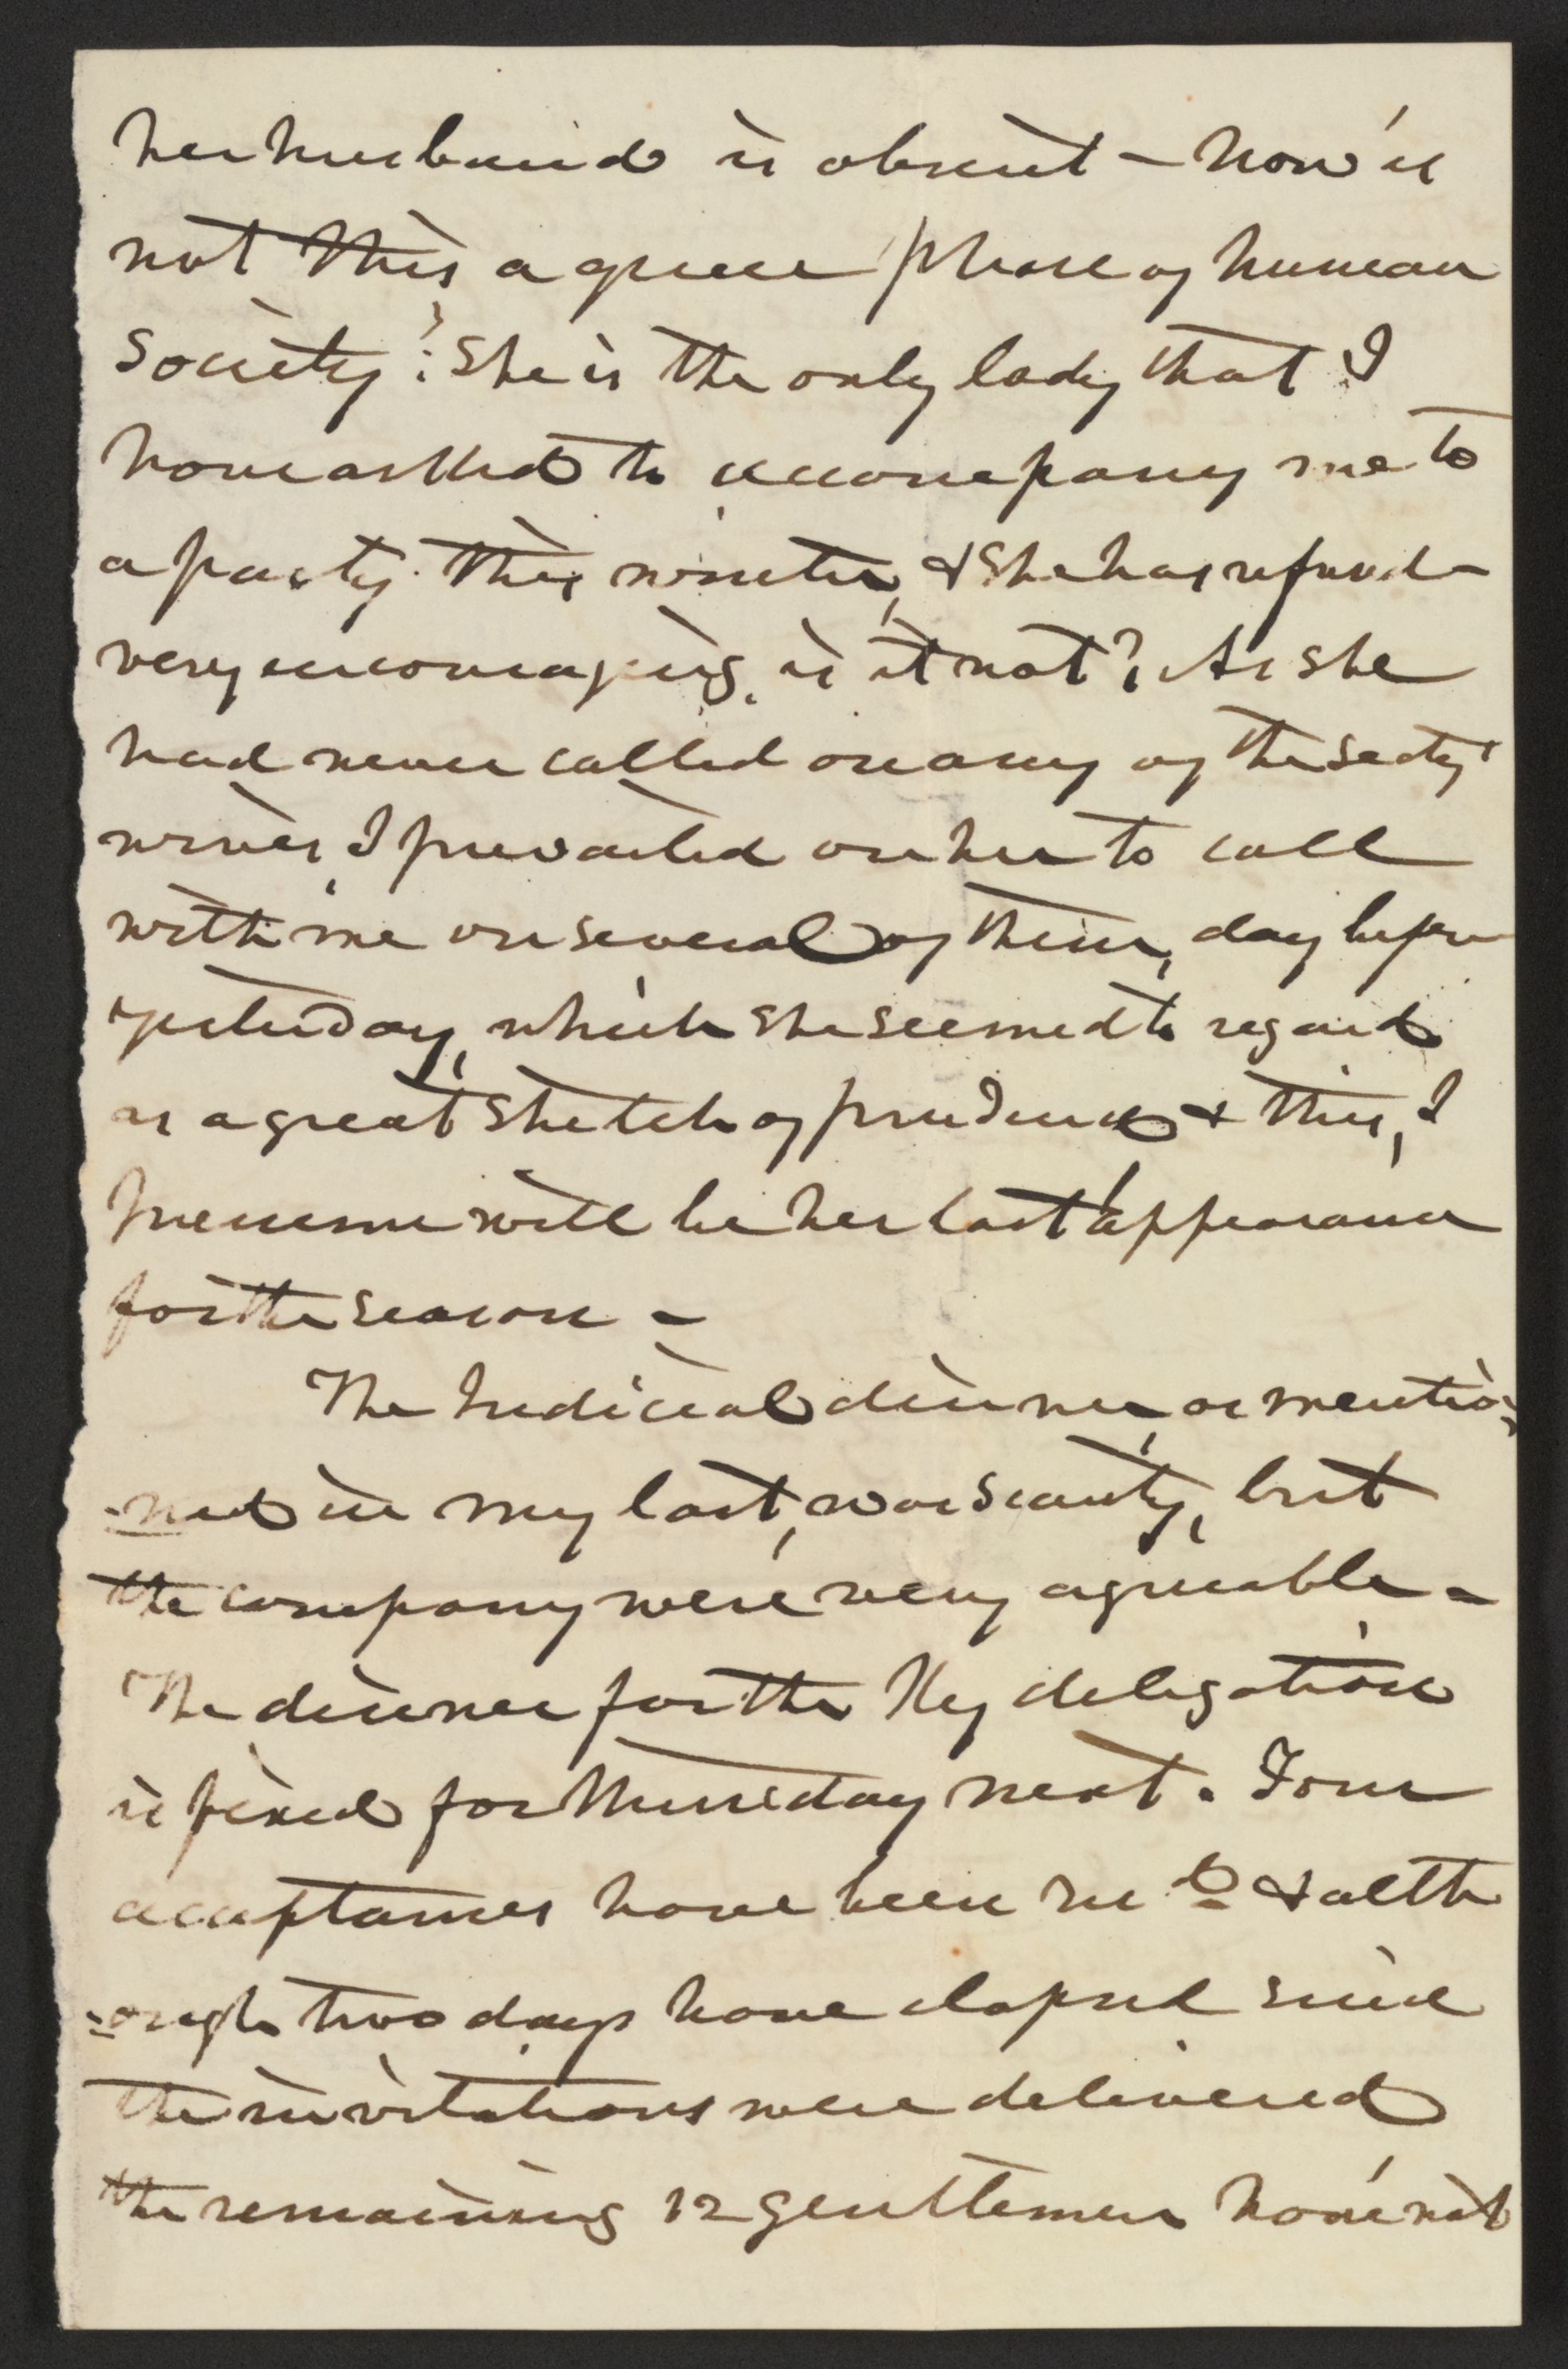 her husband is absent – now is
not this a queer phase of human
society? She is the only lady that I
have asked to accompany me to
a party this winter, & she has refused –
very encouraging, is it not? As she
had never called on any of the Secty's
wives, I prevailed on her to call
with me on several of them, day before
yesterday, which she seemed to regard
as a great stretch of prudence & this, I
presume will be her last appearance
for the season –
The Judicial dinner, as mentio-
-ned in my last, was scanty, but
the company were very agreeable –
The dinner for the Ky delegation
is fixed for Thursday next. Four
acceptances have been recd & alth
-ough two days have elapsed since
the invitations were delivered
the remaining 12 gentlemen have not